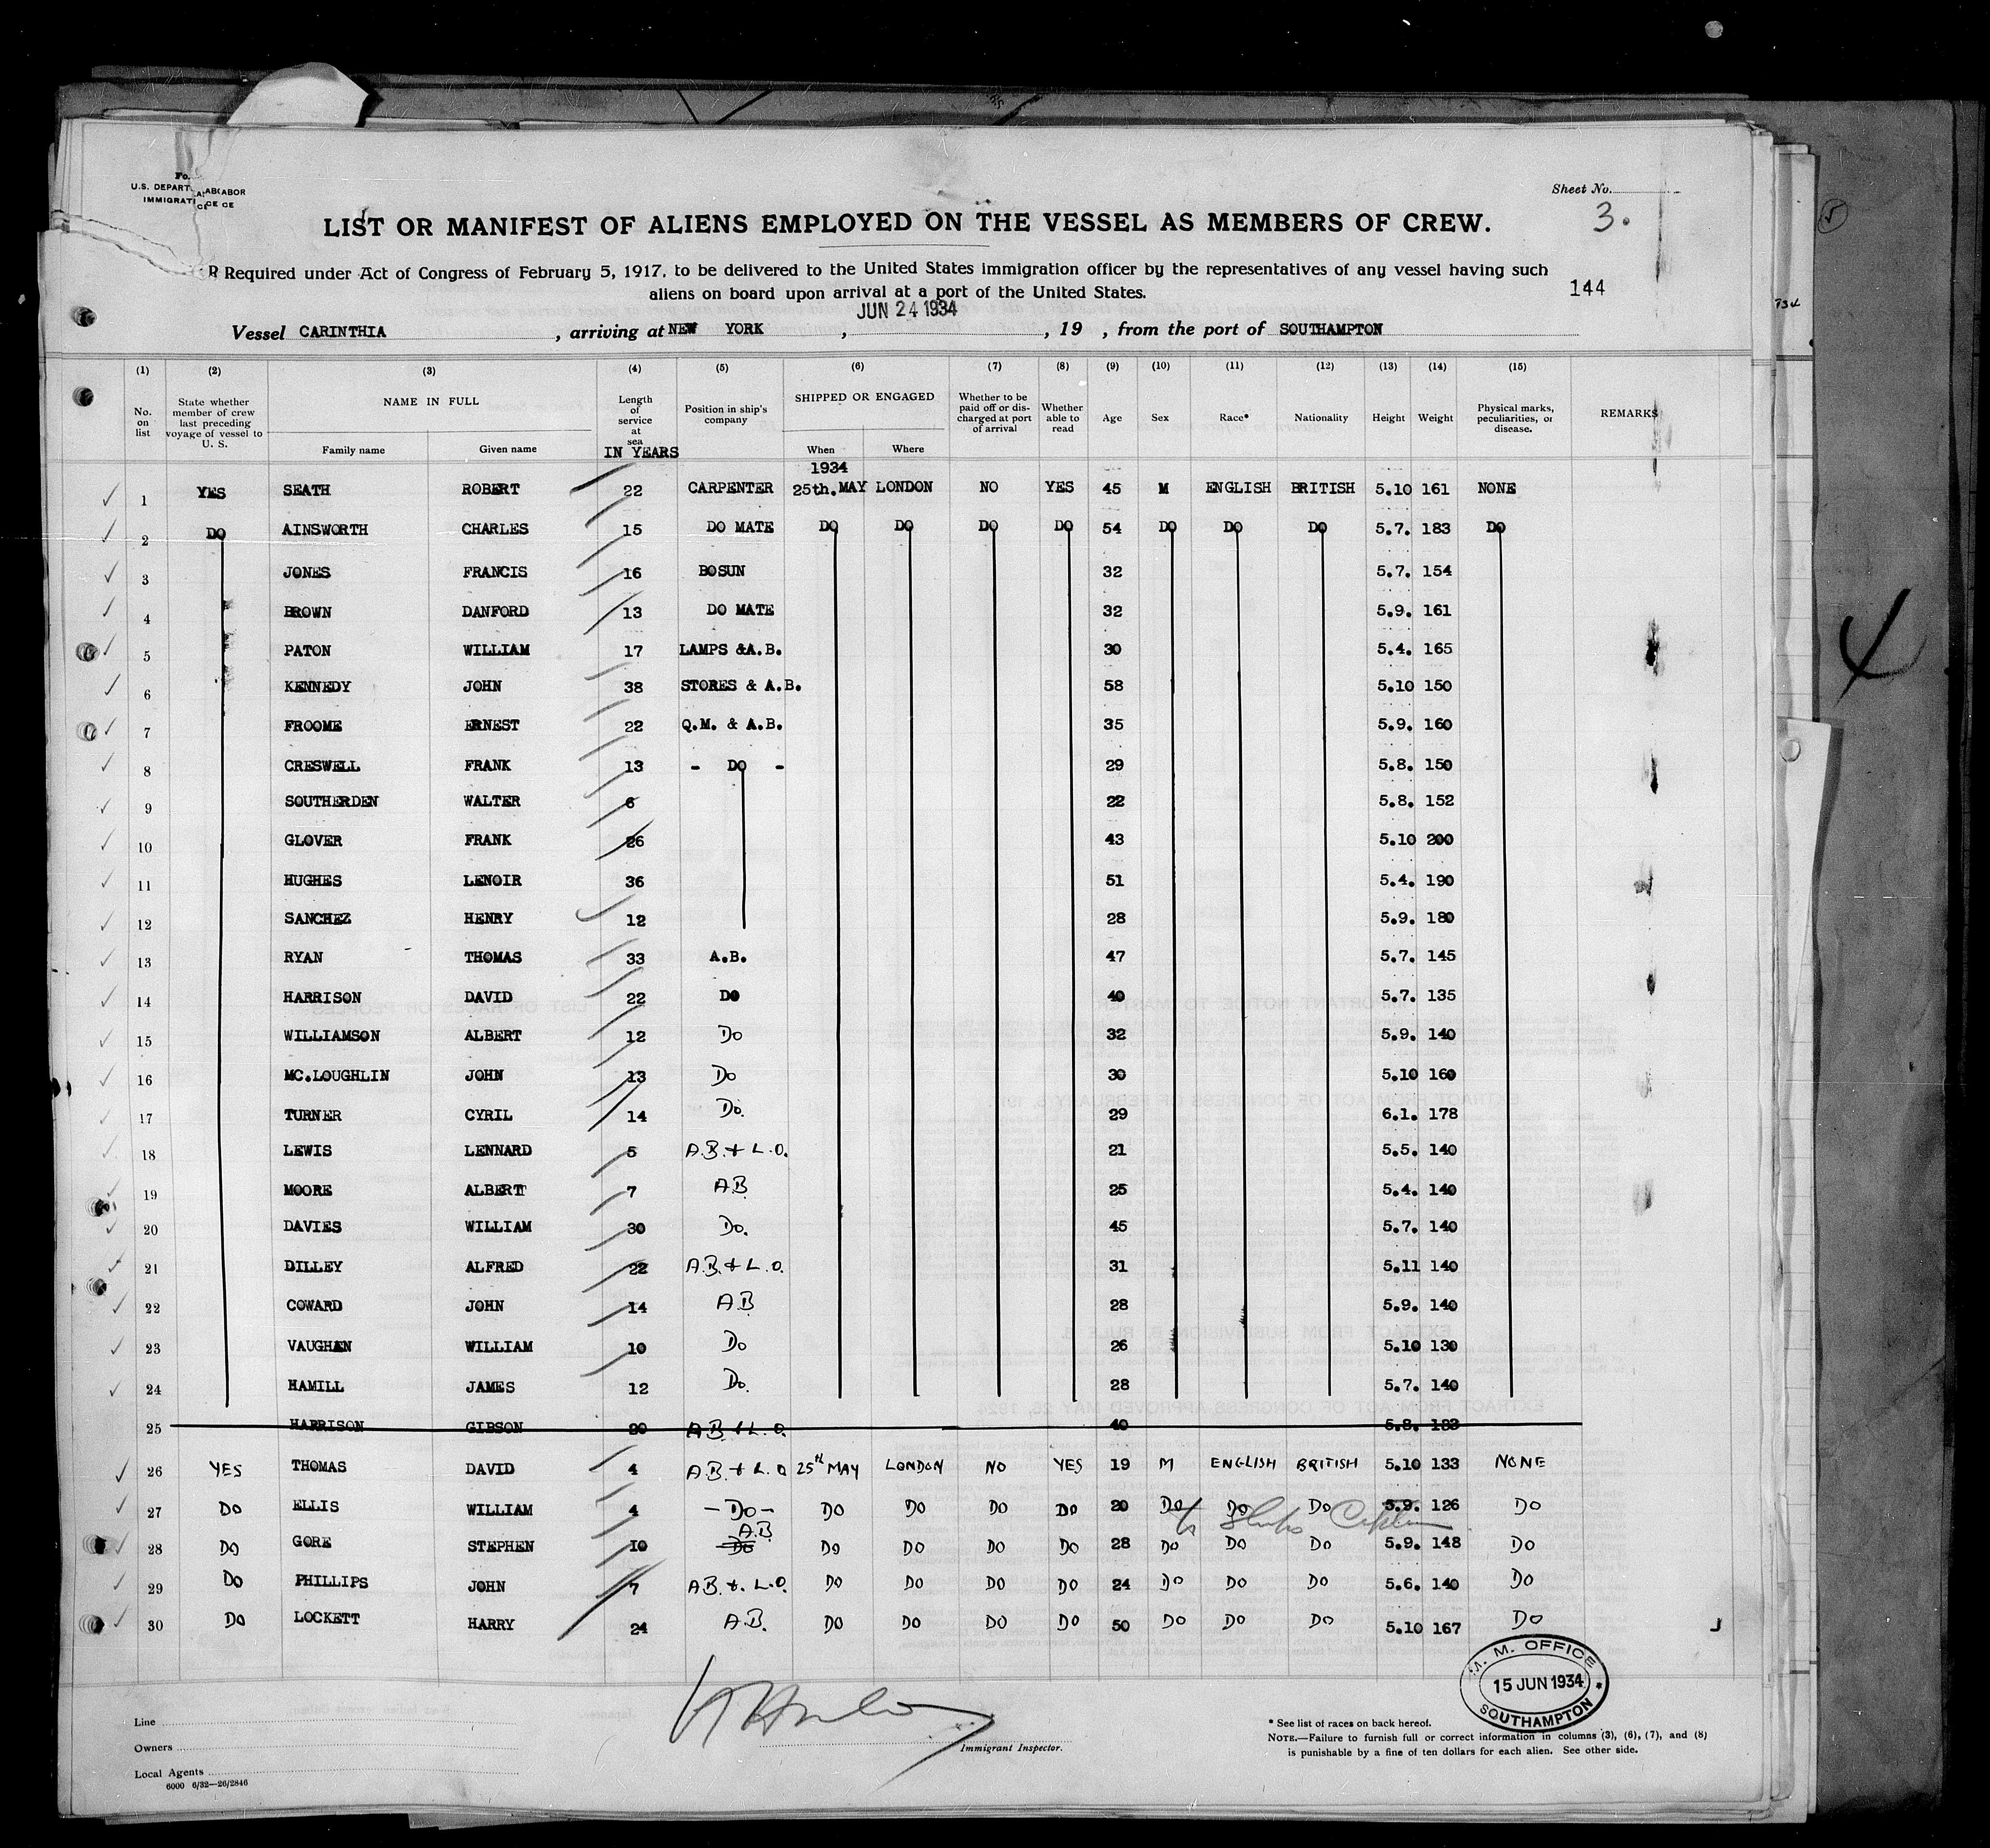 Sheet No.
3.
U.S. DEPART
LIST OR MANIFEST OF ALIENS EMPLOYED ON THE VESSEL AS MEMBERS OF CREW.
Required under Act of Congress of February 5, 1917, to be delivered to the United States immigration officer by the representatives of any vessel having such
aliens on board upon arrival at a port of the United States.
144
JUN 24 1934
Vessel CARINTHIA , arriving at NEW YORK , , 19 , from the port of SOUTHAMPTON
(1) (2) (3) (4) (5) (6) (7) (8) (9) (10) (11) (12) (13) (14) (15)
No. on list State whether member of crew last preceding voyage of vessel to U. S. NAME IN FULL Family name Given name Length of service at sea IN YEARS Position in ship's company SHIPPED OR ENGAGED When Where Whether to be paid off or discharged at port of arrival Whether able to read Age Sex Race* Nationality Height Weight Physical marks, peculiarities, or disease. REMARKS
1934
1 YES SEATH ROBERT 22 CARPENTER 25th.MAY LONDON NO YES 45 M ENGLISH BRITISH 5.10 161 NONE
2 DO AINSWORTH CHARLES 15 DO MATE DO DO DO DO 54 DO DO DO 5.7. 183 DO
3 JONES FRANCIS 16 BOSUN 32 5.7. 154
4 BROWN DANFORD 13 DO MATE 32 5.9. 161
5 PATON WILLIAM 17 LAMPS &A.B. 30 5.4. 165
6 KENNEDY JOHN 38 STORES & A.B. 58 5.10 150
7 FROOME ERNEST 22 Q.M. & A.B. 35 5.9. 160
8 CRESWELL FRANK 13 - DO - 29 5.8. 150
9 SOUTHERDEN WALTER 6 22 5.8. 152
10 GLOVER FRANK 26 43 5.10 200
11 HUGHES LENOIR 36 51 5.4. 190
12 SANCHEZ HENRY 12 28 5.9. 180
13 RYAN THOMAS 33 A.B. 47 5.7. 145
14 HARRISON DAVID 22 DO 40 5.7. 135
15 WILLIAMSON ALBERT 12 Do 32 5.9. 140
16 MC.LOUGHLIN JOHN 13 Do 30 5.10 160
17 TURNER CYRIL 14 Do. 29 6.1. 178
18 LEWIS LENNARD 5 A.B. + L.O. 21 5.5. 140
19 MOORE ALBERT 7 A.B 25 5.4. 140
20 DAVIES WILLIAM 30 Do. 45 5.7. 140
21 DILLEY ALFRED 22 A.B. + L.O. 31 5.11 140
22 COWARD JOHN 14 A.B 28 5.9. 140
23 VAUGHAN WILLIAM 10 Do 26 5.10 130
24 HAMILL JAMES 12 Do. 28 5.7. 140
25 HARRISON GIBSON 20 A.B. + L.O. 40 5.8. 183
26 YES THOMAS DAVID 4 A.B. + L.O 25th MAY LONDON NO YES 19 M ENGLISH BRITISH 5.10 133 NONE
27 DO ELLIS WILLIAM 4 - Do - DO DO DO DO 20 DO DO DO 5.9. 126 DO
28 DO GORE STEPHEN 10 Do A.B DO DO DO DO 28 DO DO DO 5.9. 148 DO
29 DO PHILLIPS JOHN 7 A.B. + L.O. DO DO DO DO 24 DO DO DO 5.6. 140 DO
30 DO LOCKETT HARRY 24 A.B. DO DO DO DO 50 DO DO DO 5.10 167 DO
M. M. OFFICE
15 JUN 1934
SOUTHAMPTON
Line
Owners
Local Agents
6000 6/32—26/2846
Immigrant Inspector.
* See list of races on back hereof.
NOTE.—Failure to furnish full or correct information in columns (3), (6), (7), and (8)
is punishable by a fine of ten dollars for each alien. See other side.